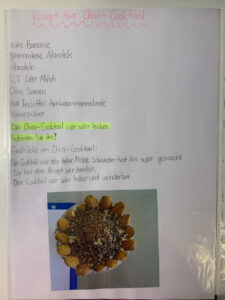 Rezept für Chia-Cocktail
eine Banane
gemahlene Mandeln
Mandeln
0,2 Liter Milch
Chia Samen
Teelöffel Aprikosenmarmelade
Kakaopulver
Der Chia-Cocktail war sehr lecker.
Probieren Sie ihn?
Eindrücke vom Chia-Cocktail:
Der Cocktail war Meine Schwester hat ihn gemacht.
Sie hat das Rezept verstanden.
Der Cocktail war sehr lecker und wunderbar.